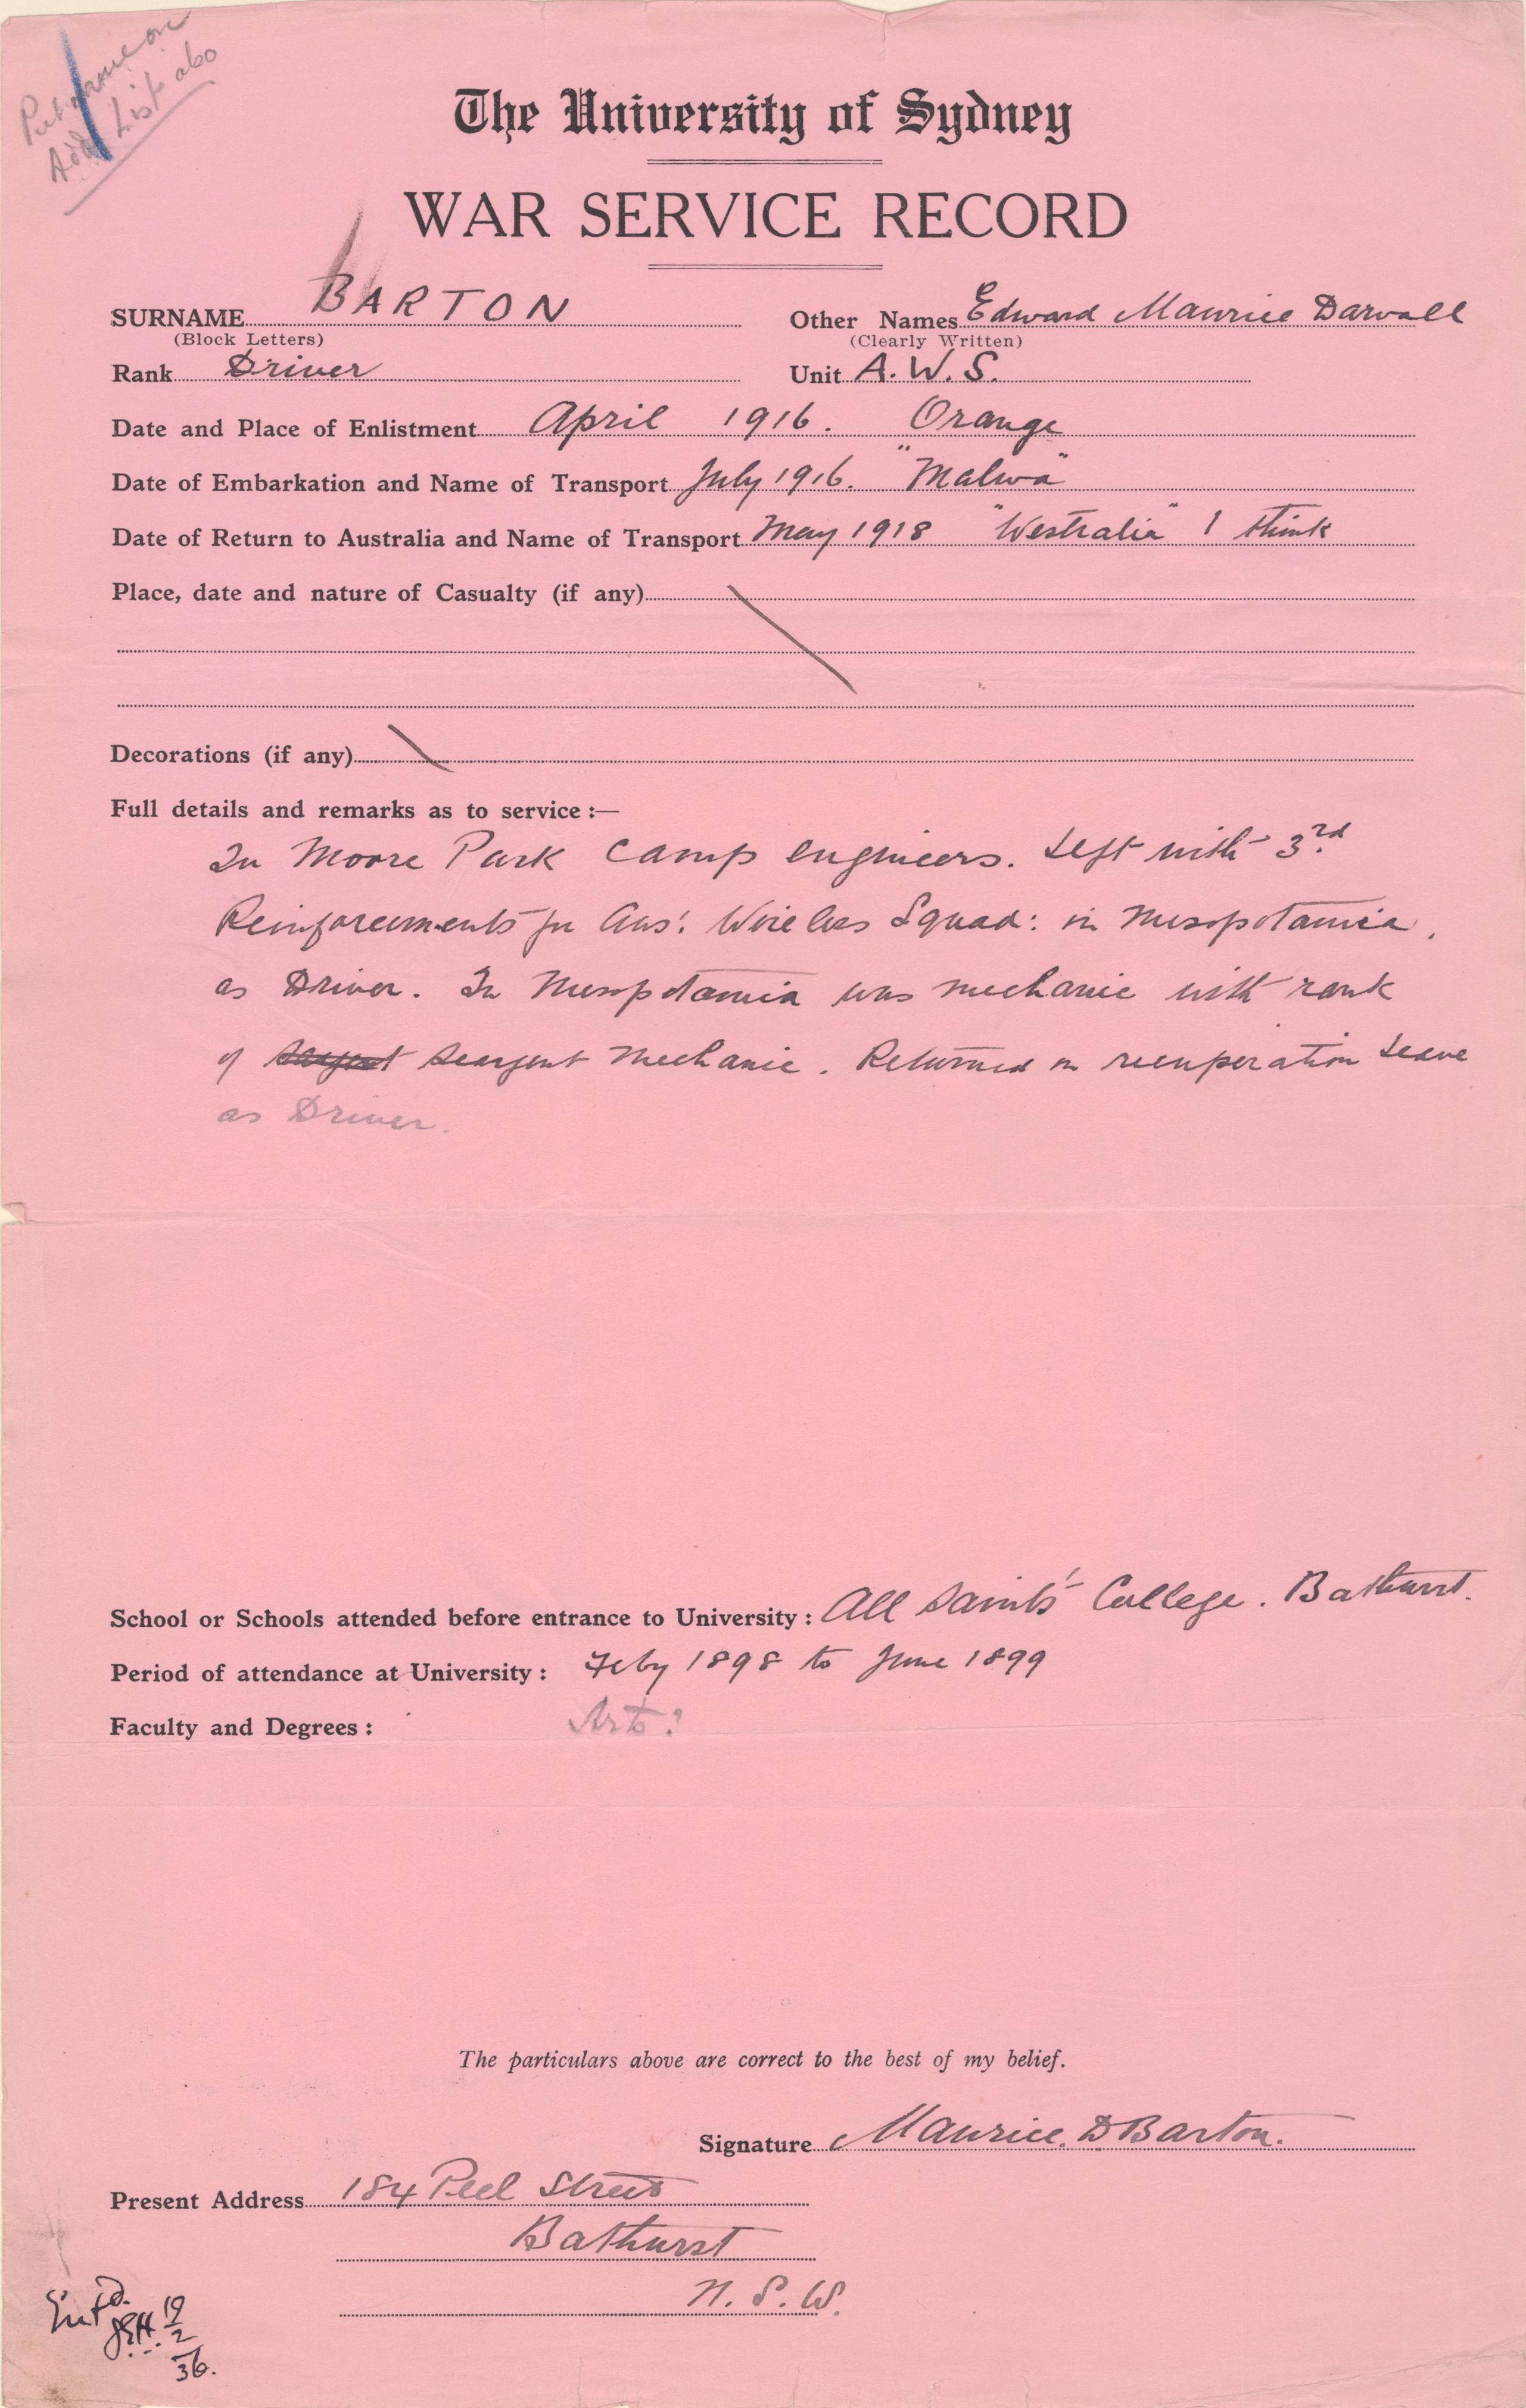 Put name on
Add List also
The University of Sydney
WAR SERVICE RECORD
SURNAME BARTON Other Names Edward Maurice Darvall
(Block Letters) (Clearly Written)
Rank Driver Unit A. W. S.
Date and Place of Enlistment April 1916. Orange
Date of Embarkation and Name of Transport July 1916. "Malwa"
Date of Return to Australia and Name of Transport May 1918 "Westralia" I think
Place, date and nature of Casualty (if any)
Decorations (if any)
Full details and remarks as to service :—
In Moore Park Camp engineers. Left with 3rd
Reinforcements for Aus: Wireless Squad: in Mesopotamia,
as Driver. In Mesopotamia was mechanic with rank
of Seargent Mechanic. Returned on recuperation Leave
as Driver.
School or Schools attended before entrance to University : All Saints' College. Bathurst.
Period of attendance at University : Feby 1898 to June 1899
Faculty and Degrees : Arts?
The particulars above are correct to the best of my belief.
Signature Maurice. D Barton.
Present Address 184 Peel Street
Bathurst
N. S. W.
Ent'd.
19
2
36.